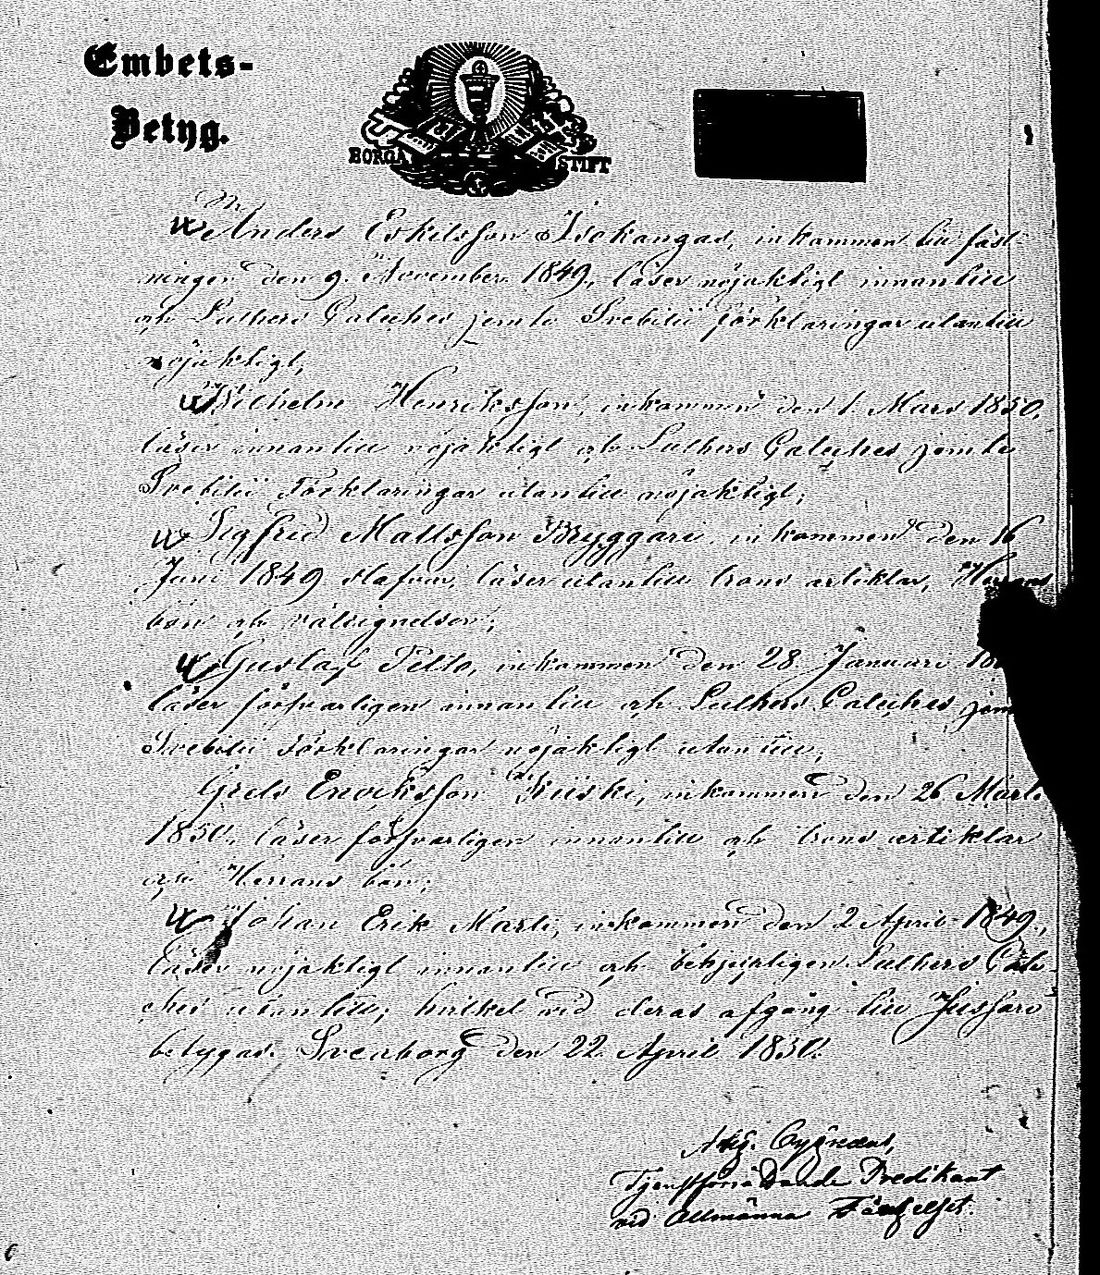 Embets-
Betyg.
BORGÅ STIFT
Anders Eskilsson Isokangas, inkommen till fäst-
ningen den 9. November 1849, läser nöjaktigt innantill
och Luthers Cateches jemte Svebilii förklaringar utantill
nöjaktigt;
Wilhelm Henriksson, inkommen den 1 Mars 1850,
läser innantill nöjaktigt och Luthers Cateches jemte
Svebilii Förklaringar utantill nöjaktigt;
Sigfrid Mattsson Bryggari, inkommen den 16
Juni 1849 stafvar, läser utantill trons artiklar, Herrans
bön och välsignelsen;
Gustaf Pelto, inkommen den 28 Januari
läser försvarligen innantill och Luthers Cateches
Svebilii Förklaringar nöjaktigt utantill;
Grels Ericksson Kiiski, inkommen den 26 Marts
1850, läser försvarligen innantill och trons artiklar
och Herrans bön;
Johan Erik Marti, inkommen den 2 April 1849,
läser nöjaktigt innantill och behjertligen Luthers Cate-
ches utantill; hvilket vid deras afgång till Jussarö
betygas. Sveaborg den 22 April 1850.
Cygnæus,
Tjenstförrättande Predikant
vid Allmänna Fängelset.